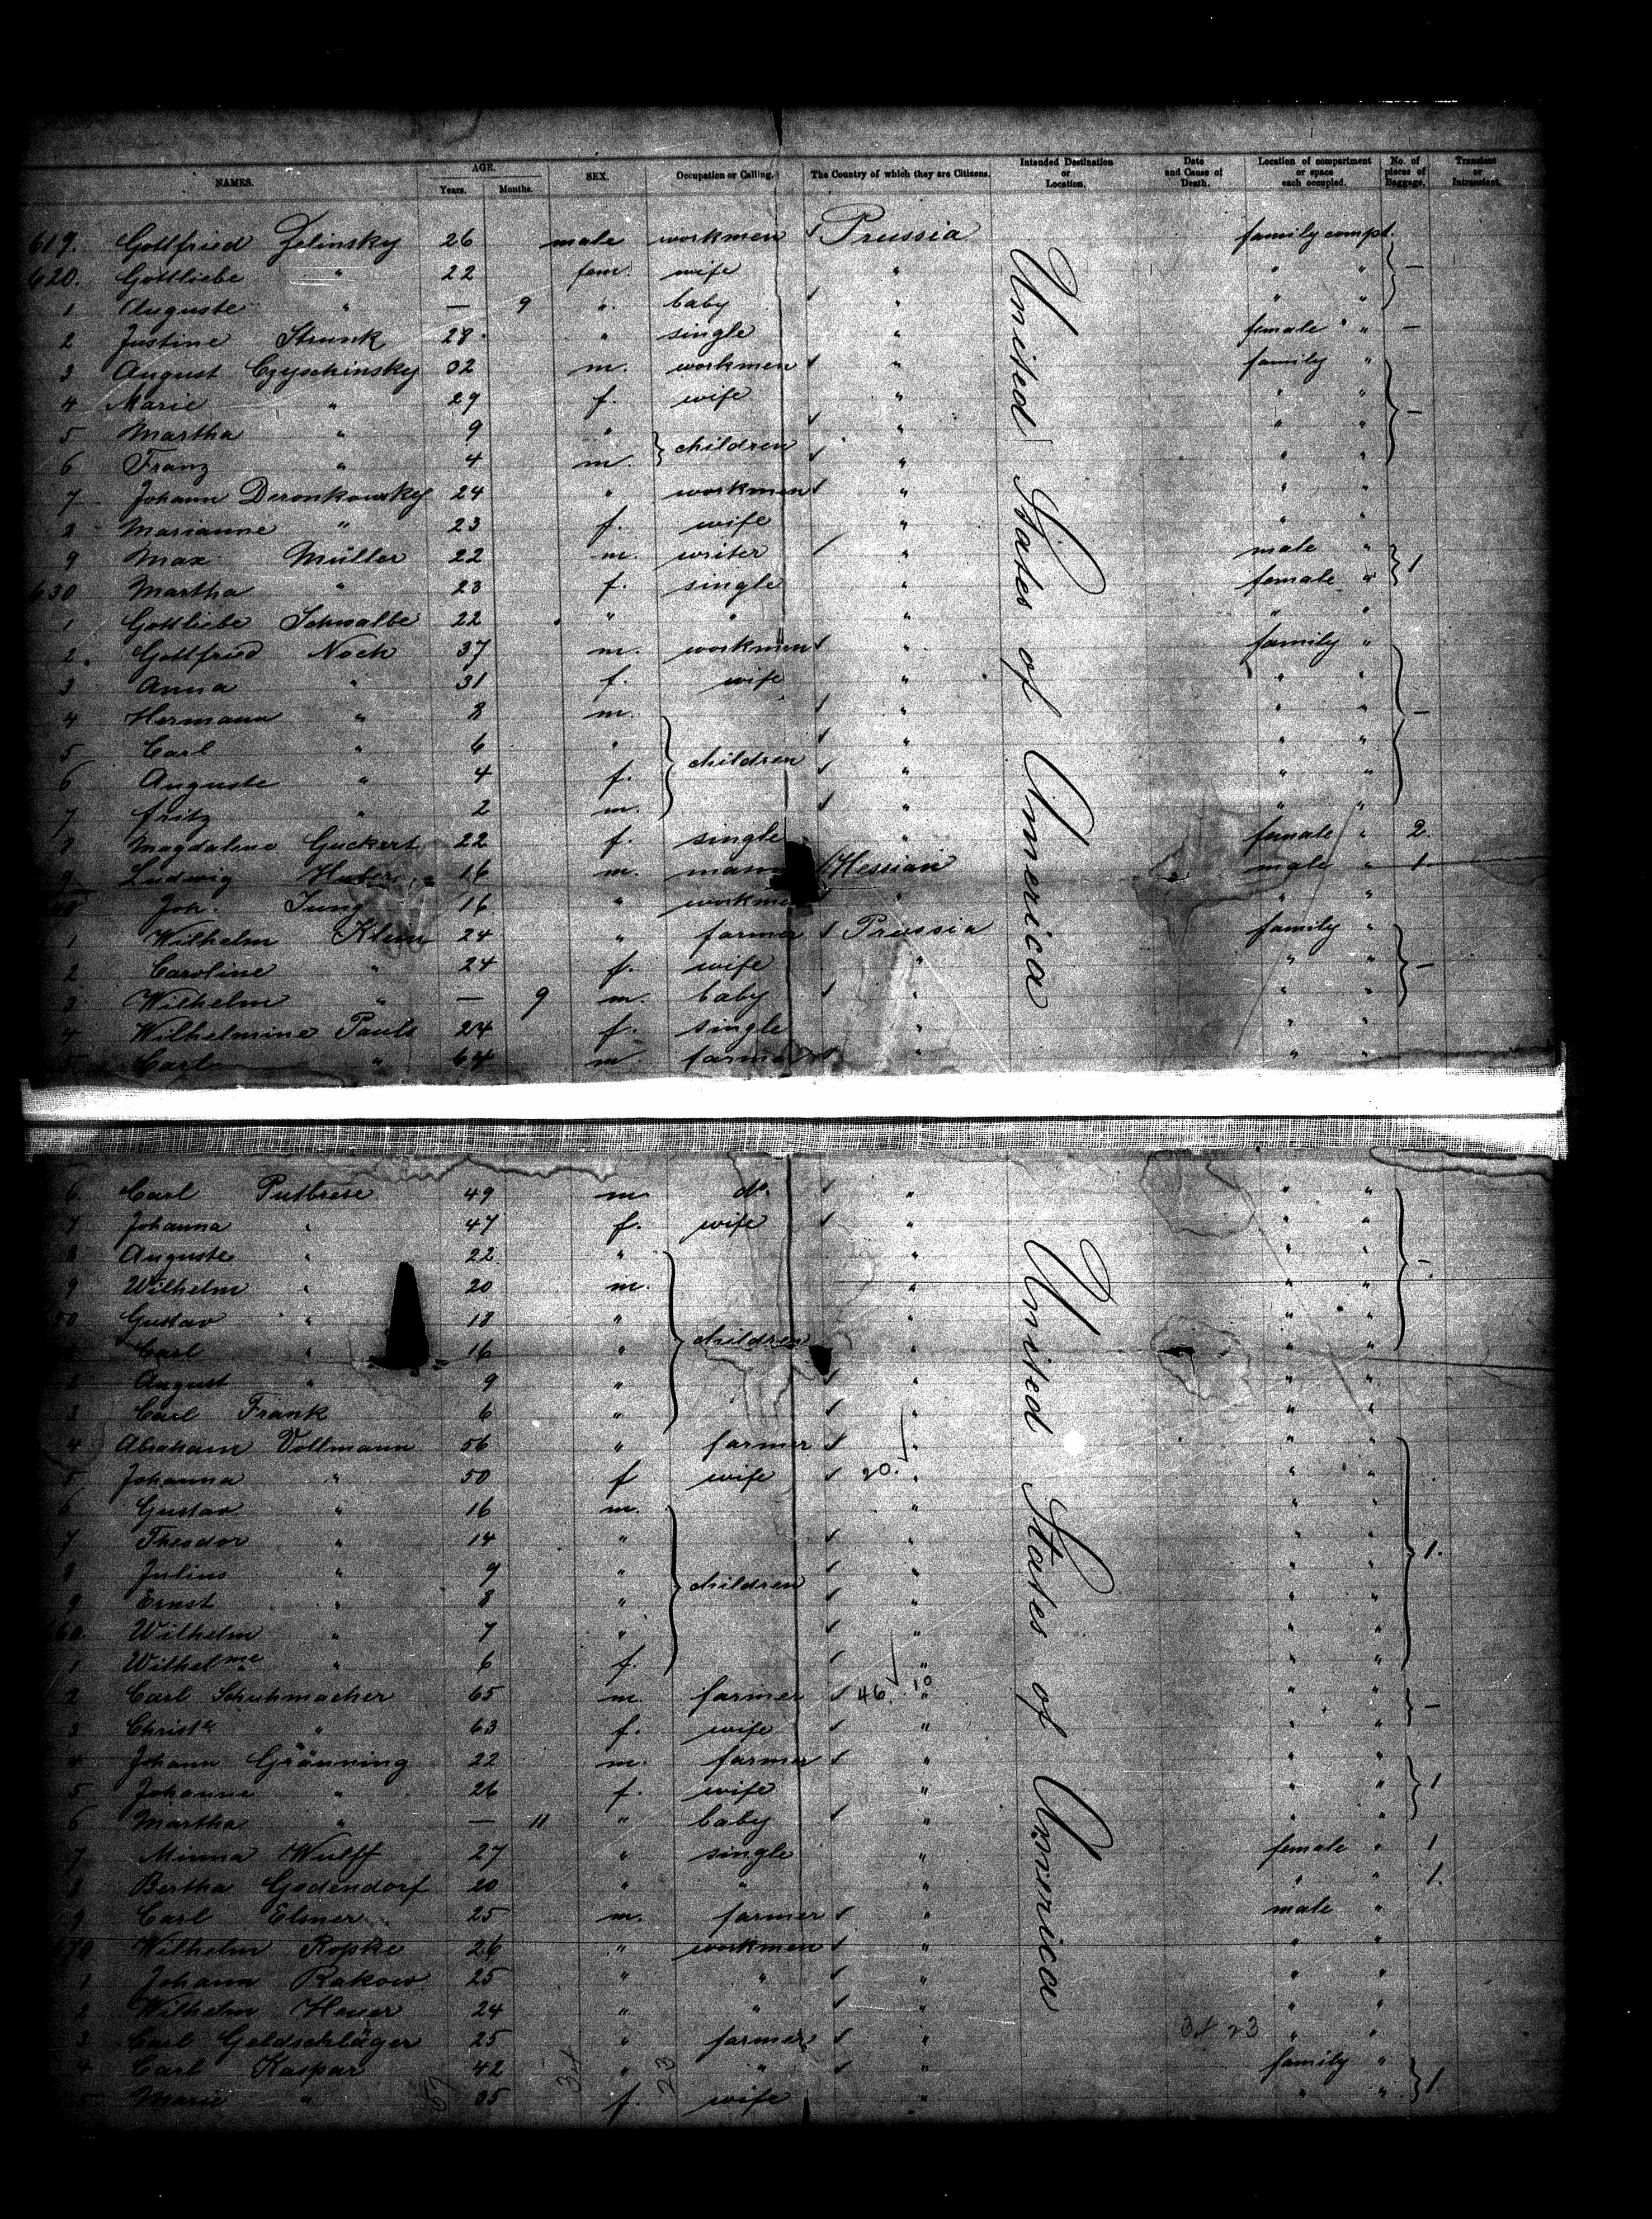 NAMES. AGE. Years. Months. SEX. Occupation or Calling. The Country of which they are Citizens. Intended Destination or Location. Date and Cause of Death. Location of compartment or space each occupied. No. of pieces of Baggage. Transient or Intransient.
619. Gottfried Zelinsky 26 male workmen Prussia family compt.
620. Gottliebe " 22 fem. wife " " " –
1 Auguste " — 9 " baby " " "
2 Justine Strunk 28 " single " female " –
3 August Czyschinsky 32 m. workmen " family "
4 Marie " 29 f. wife " " " –
5 Martha " 9 " children " " "
6 Franz " 4 m. " " "
7 Johann Deronkowsky 24 " workmen " " "
8 Marianne " 23 f. wife " " "
9 Max Müller 22 m. writer " male " 1
630 Martha " 23 f. single " female "
1 Gottliebe Schwalbe 22 " " " " "
2. Gottfried Noch 37 m. workmen " family "
3 Anna " 31 f. wife " " "
4 Hermann " 8 m. " " " –
5 Carl " 6 " children " " "
6 Auguste " 4 f. " " "
7 Fritz " 2 m. " " "
8 Magdalena Guckert 22 f. single " female " 2.
9 Ludwig Huber 16 m. Hessian male " 1
Joh. Jung 16 " " " "
1 Wilhelm Klein 24 " farmer Prussia family "
2 Caroline " 24 f. wife " " " –
3 Wilhelm " — 9 m. baby " " "
4 Wilhelmine Pauls 24 f. single " " "
5 Carl " 64 m farmer " " "
6 Carl Putbrese 49 m. do. " " "
7 Johanna " 47 f. wife " " "
8 Auguste " 22 " " " " –
9 Wilhelm " 20 m. " " "
50 Gustav " 18 " children " " "
Carl " 16 " " " "
2 August " 9 " " " "
3 Carl Frank 6 " " " "
4 Abraham Vollmann 56 " farmer " " "
5 Johanna " 50 f wife 20. " " "
6 Gustav " 16 m. " " "
7 Theodor " 14 " " " " 1.
8 Julius " 9 " children " " "
9 Ernst " 8 " " " "
60. Wilhelm " 7 " " " "
1 Wilhelme " 6 f. " " "
2 Carl Schuhmacher 65 m. farmer 46. 10 " " " –
3 Christe " 63 f. wife " " "
4 Johann Gränning 22 m. farmer " " "
5 Johanne " 26 f. wife " " " 1
6 Martha " — 11 " baby " " "
7 Minna Wulff 27 " single " female " 1
8 Bertha Godendorf 20 " " " " " 1.
9 Carl Elsner 25 m. farmer " male "
70 Wilhelm Ropke 26 " workmen " " "
1 Johann Rakow 25 " " " " "
2 Wilhelm Heuer 24 " " " " "
3 Carl Goldschläger 25 " farmer " 34 23 " "
4 Carl Kaspar 42 " " " family "
5 Marie " 35 f. wife " " " 1
United States of America
United States of America
57 34 23